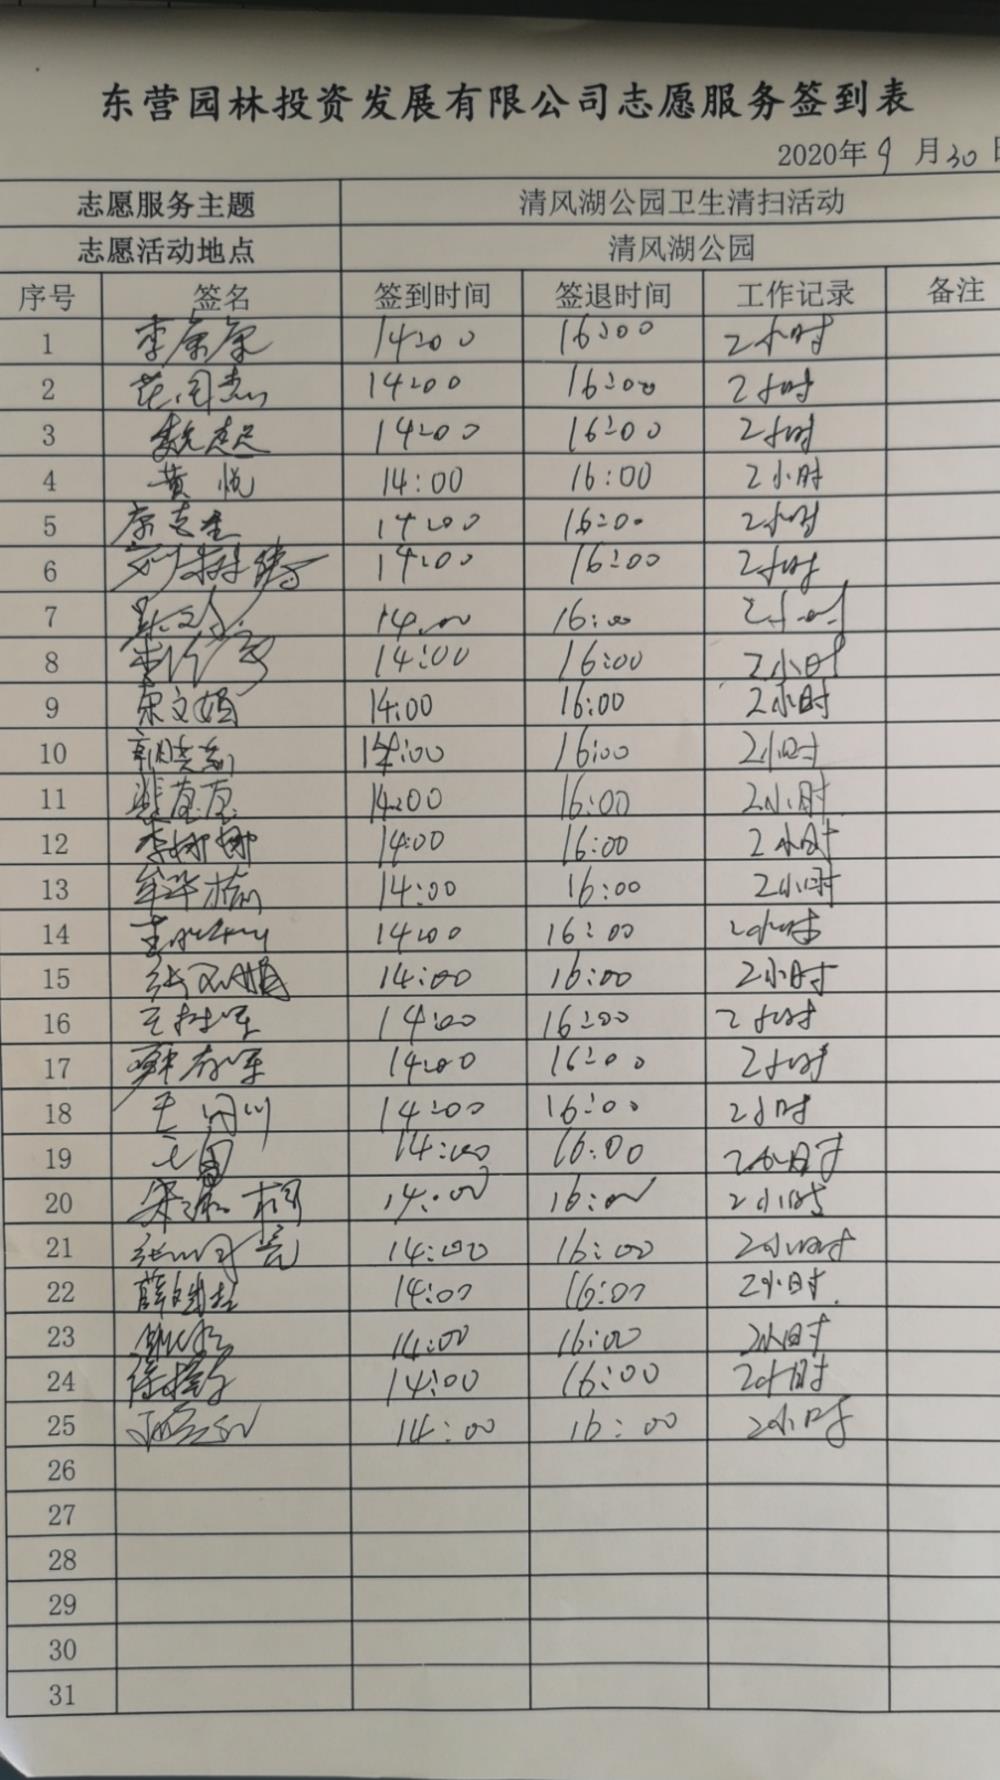 东营园林投资发展有限公司志愿服务签到表
2020年9月30日
志愿服务主题 清风湖公园卫生清扫活动
志愿活动地点 清风湖公园
序号 签名 签到时间 签退时间 工作记录 备注
1 李康康 14:00 16:00 2小时
2 14:00 16:00 2小时
3 魏志超 14:00 16:00 2小时
4 黄悦 14:00 16:00 2小时
5 14:00 16:00 2小时
6 14:00 16:00 2小时
7 14:00 16:00 2小时
8 14:00 16:00 2小时
9 宋文娟 14:00 16:00 2小时
10 14:00 16:00 2小时
11 14:00 16:00 2小时
12 李娜娜 14:00 16:00 2小时
13 14:00 16:00 2小时
14 14:00 16:00 2小时
15 14:00 16:00 2小时
16 14:00 16:00 2小时
17 14:00 16:00 2小时
18 14:00 16:00 2小时
19 14:00 16:00 2小时
20 14:00 16:00 2小时
21 14:00 16:00 2小时
22 14:00 16:00 2小时
23 14:00 16:00 2小时
24 14:00 16:00 2小时
25 14:00 16:00 2小时
26
27
28
29
30
31